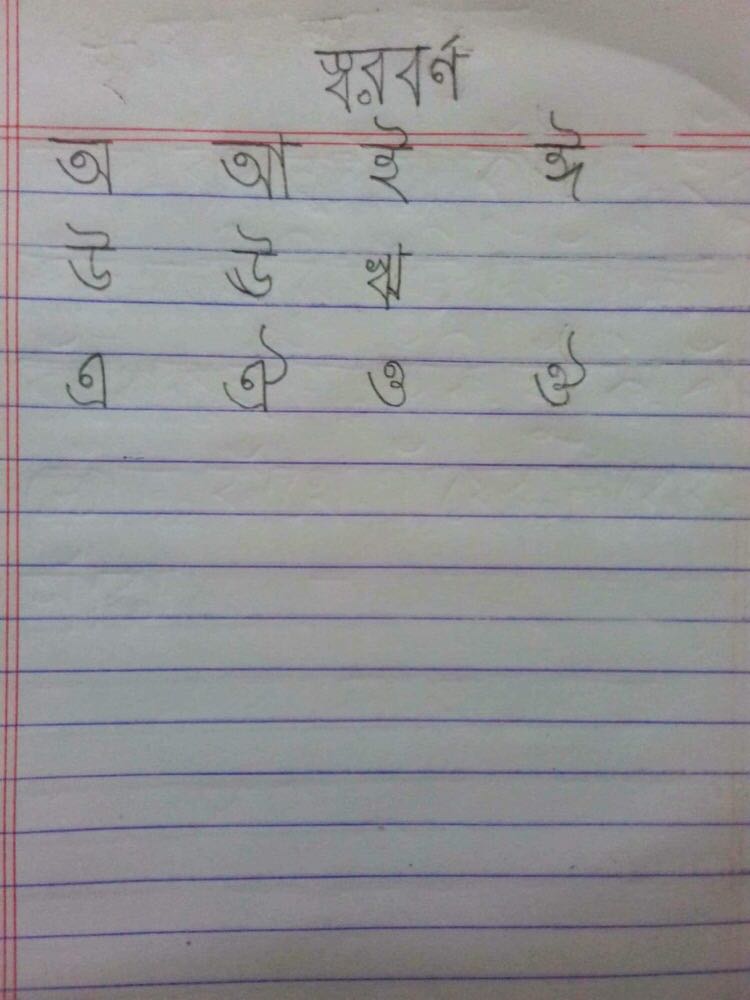 স্বরবর্ন
অ আ ই ঈ
উ ঊ ঋ
এ ঐ ও ঔ